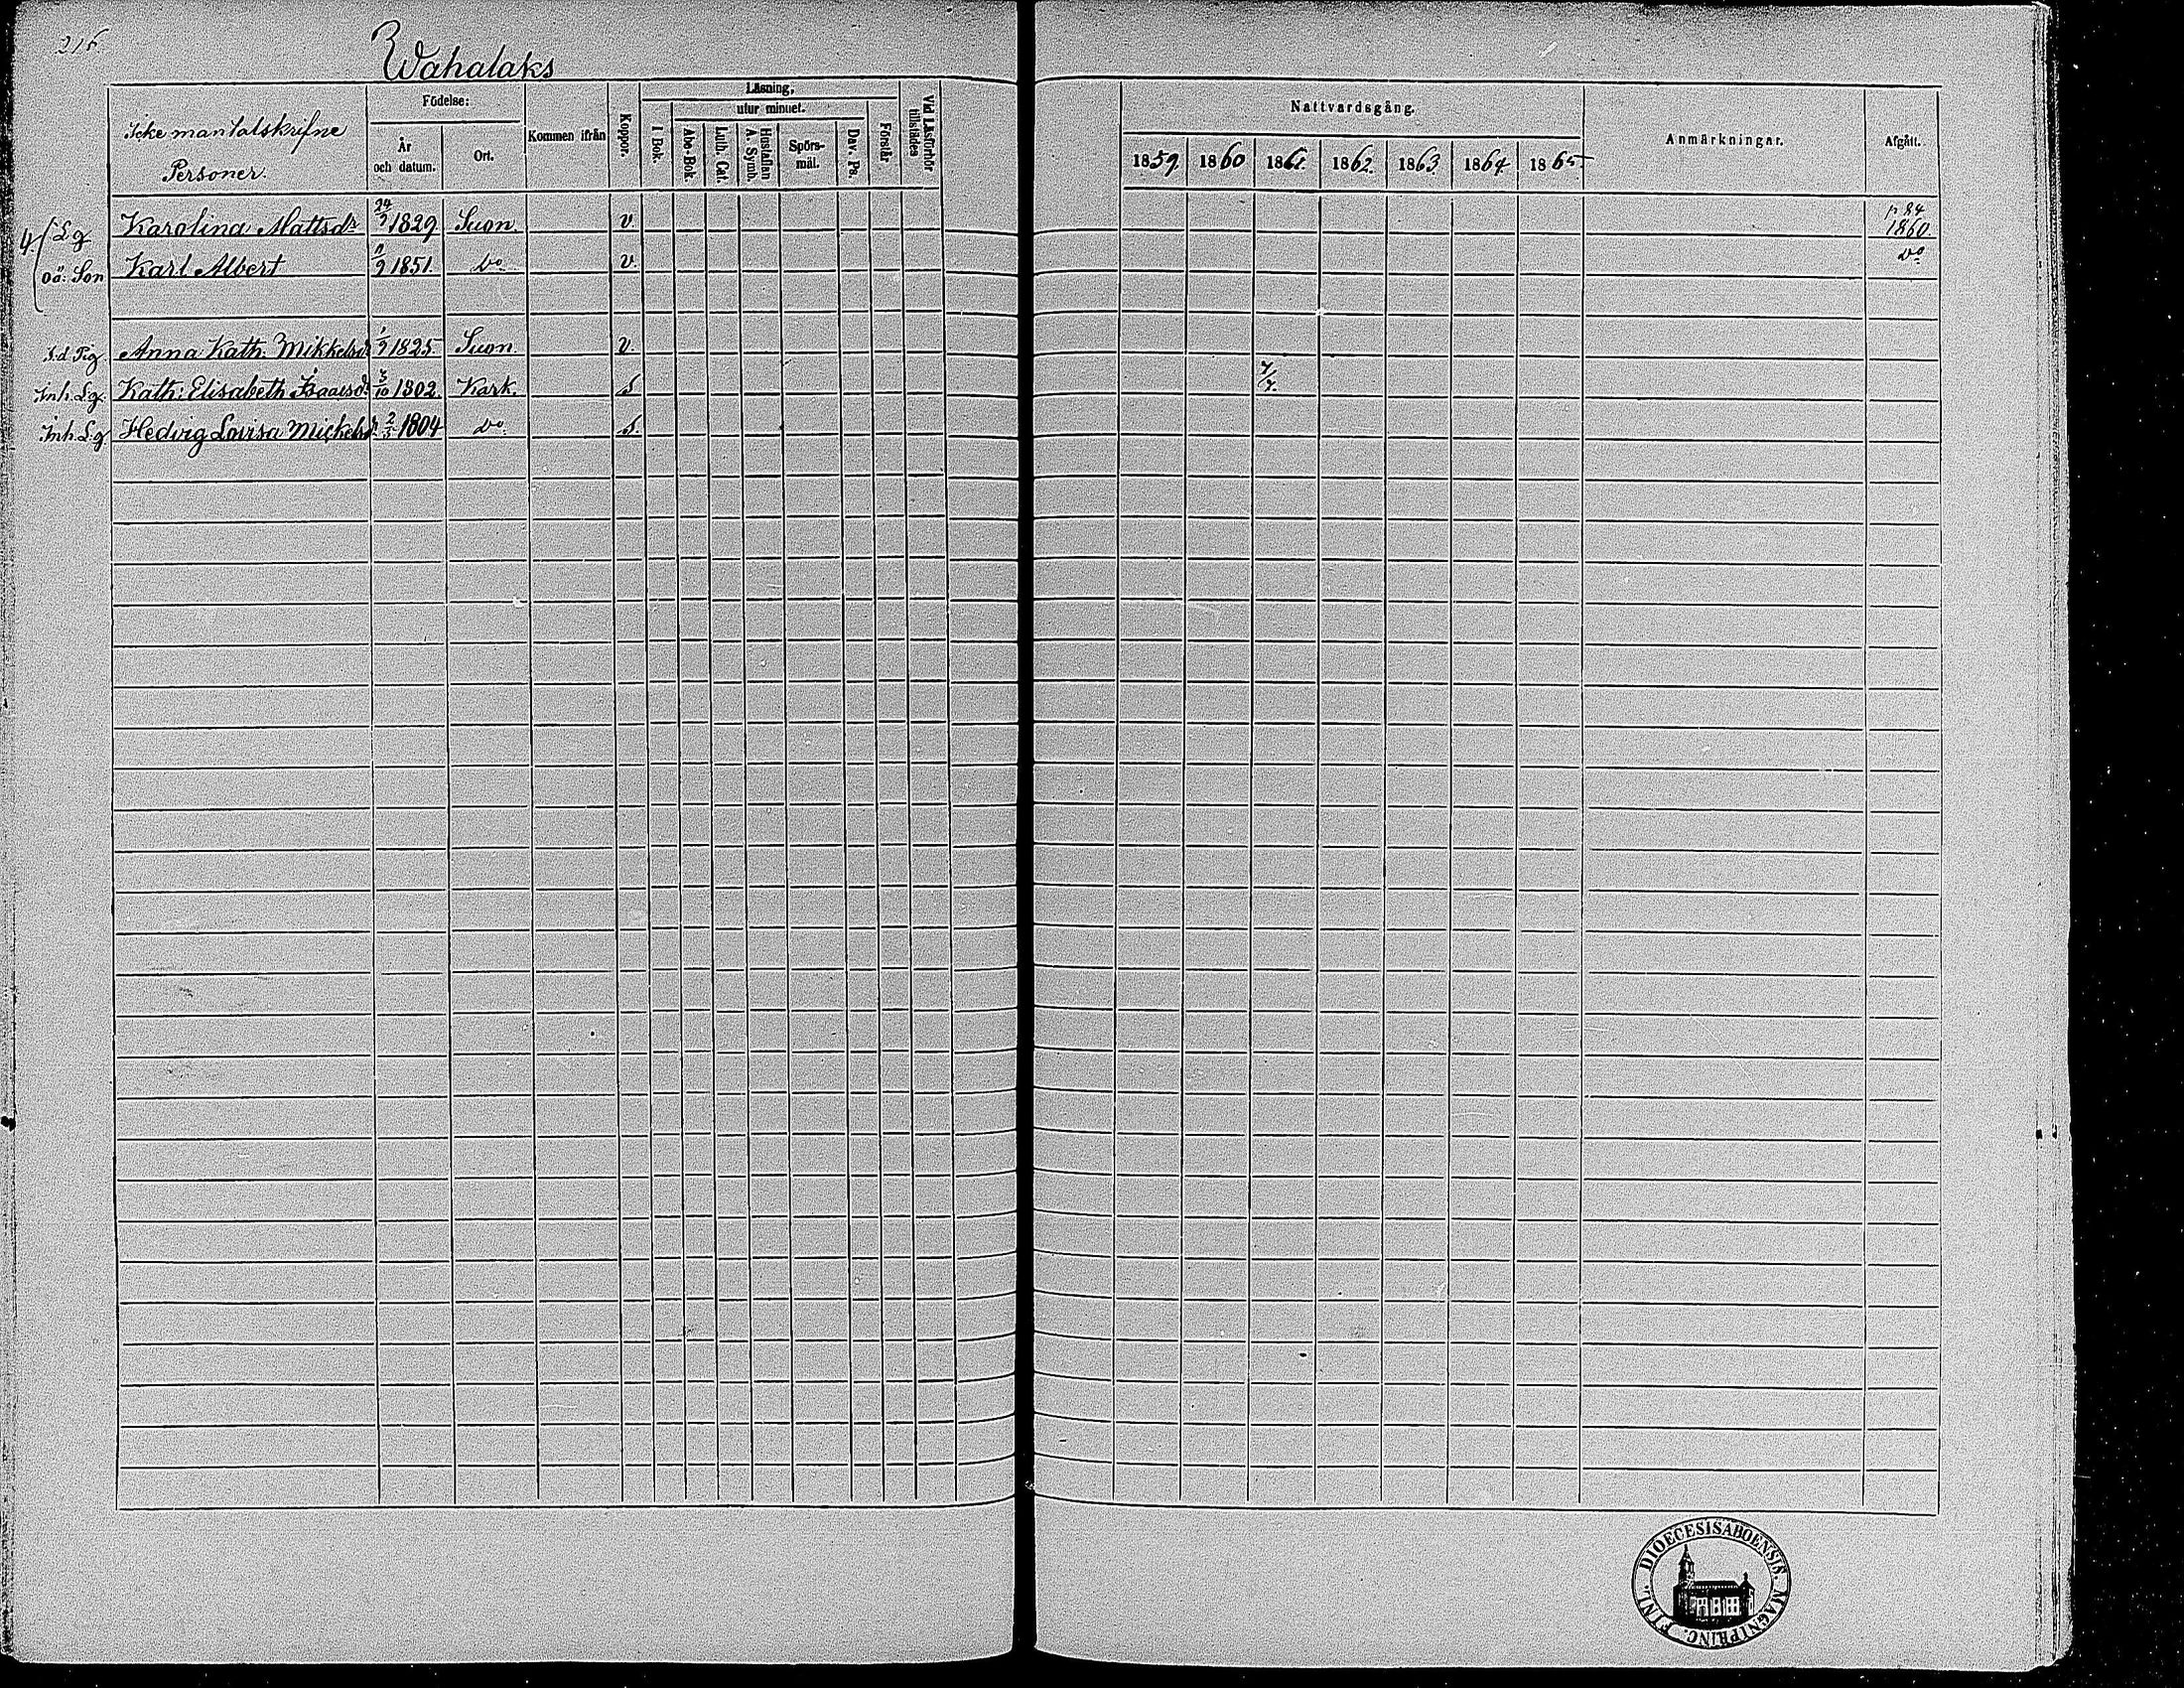 216.
Wahalaks
Icke mantalskrifne
Personer.
Födelse:
År
och datum.
Ort.
Kommen ifrån
Koppor.
Läsning,
utur minnet.
I Bok.
Abc-Bok.
Luth. Cat.
Hustaflan
A. Symb.
Spörs-
mål.
Dav. Ps.
Förstår
Vid Läsförhör
tillstädes
Nattvardsgång.
1859. 1860 1861. 1862. 1863. 1864. 1865.
Anmärkningar.
Afgått.
Lg Karolina Mattsdr 24/9 1829 Suon. v. p 84 1860.
oä: Son Karl Albert 1851. Do v. Do
Anna Kath: Mikkelsdr 1825. Suon. v.
Inh. Lg. Kath: Elisabeth Isaacsdr 3/10 1802. Kark. S 7/7.
Inh. Lg Hedvig Lovisa Mickelsdr 1804 Do S.
DIOECESIS ABOENSIS. MAGNI PRINC. FINL.